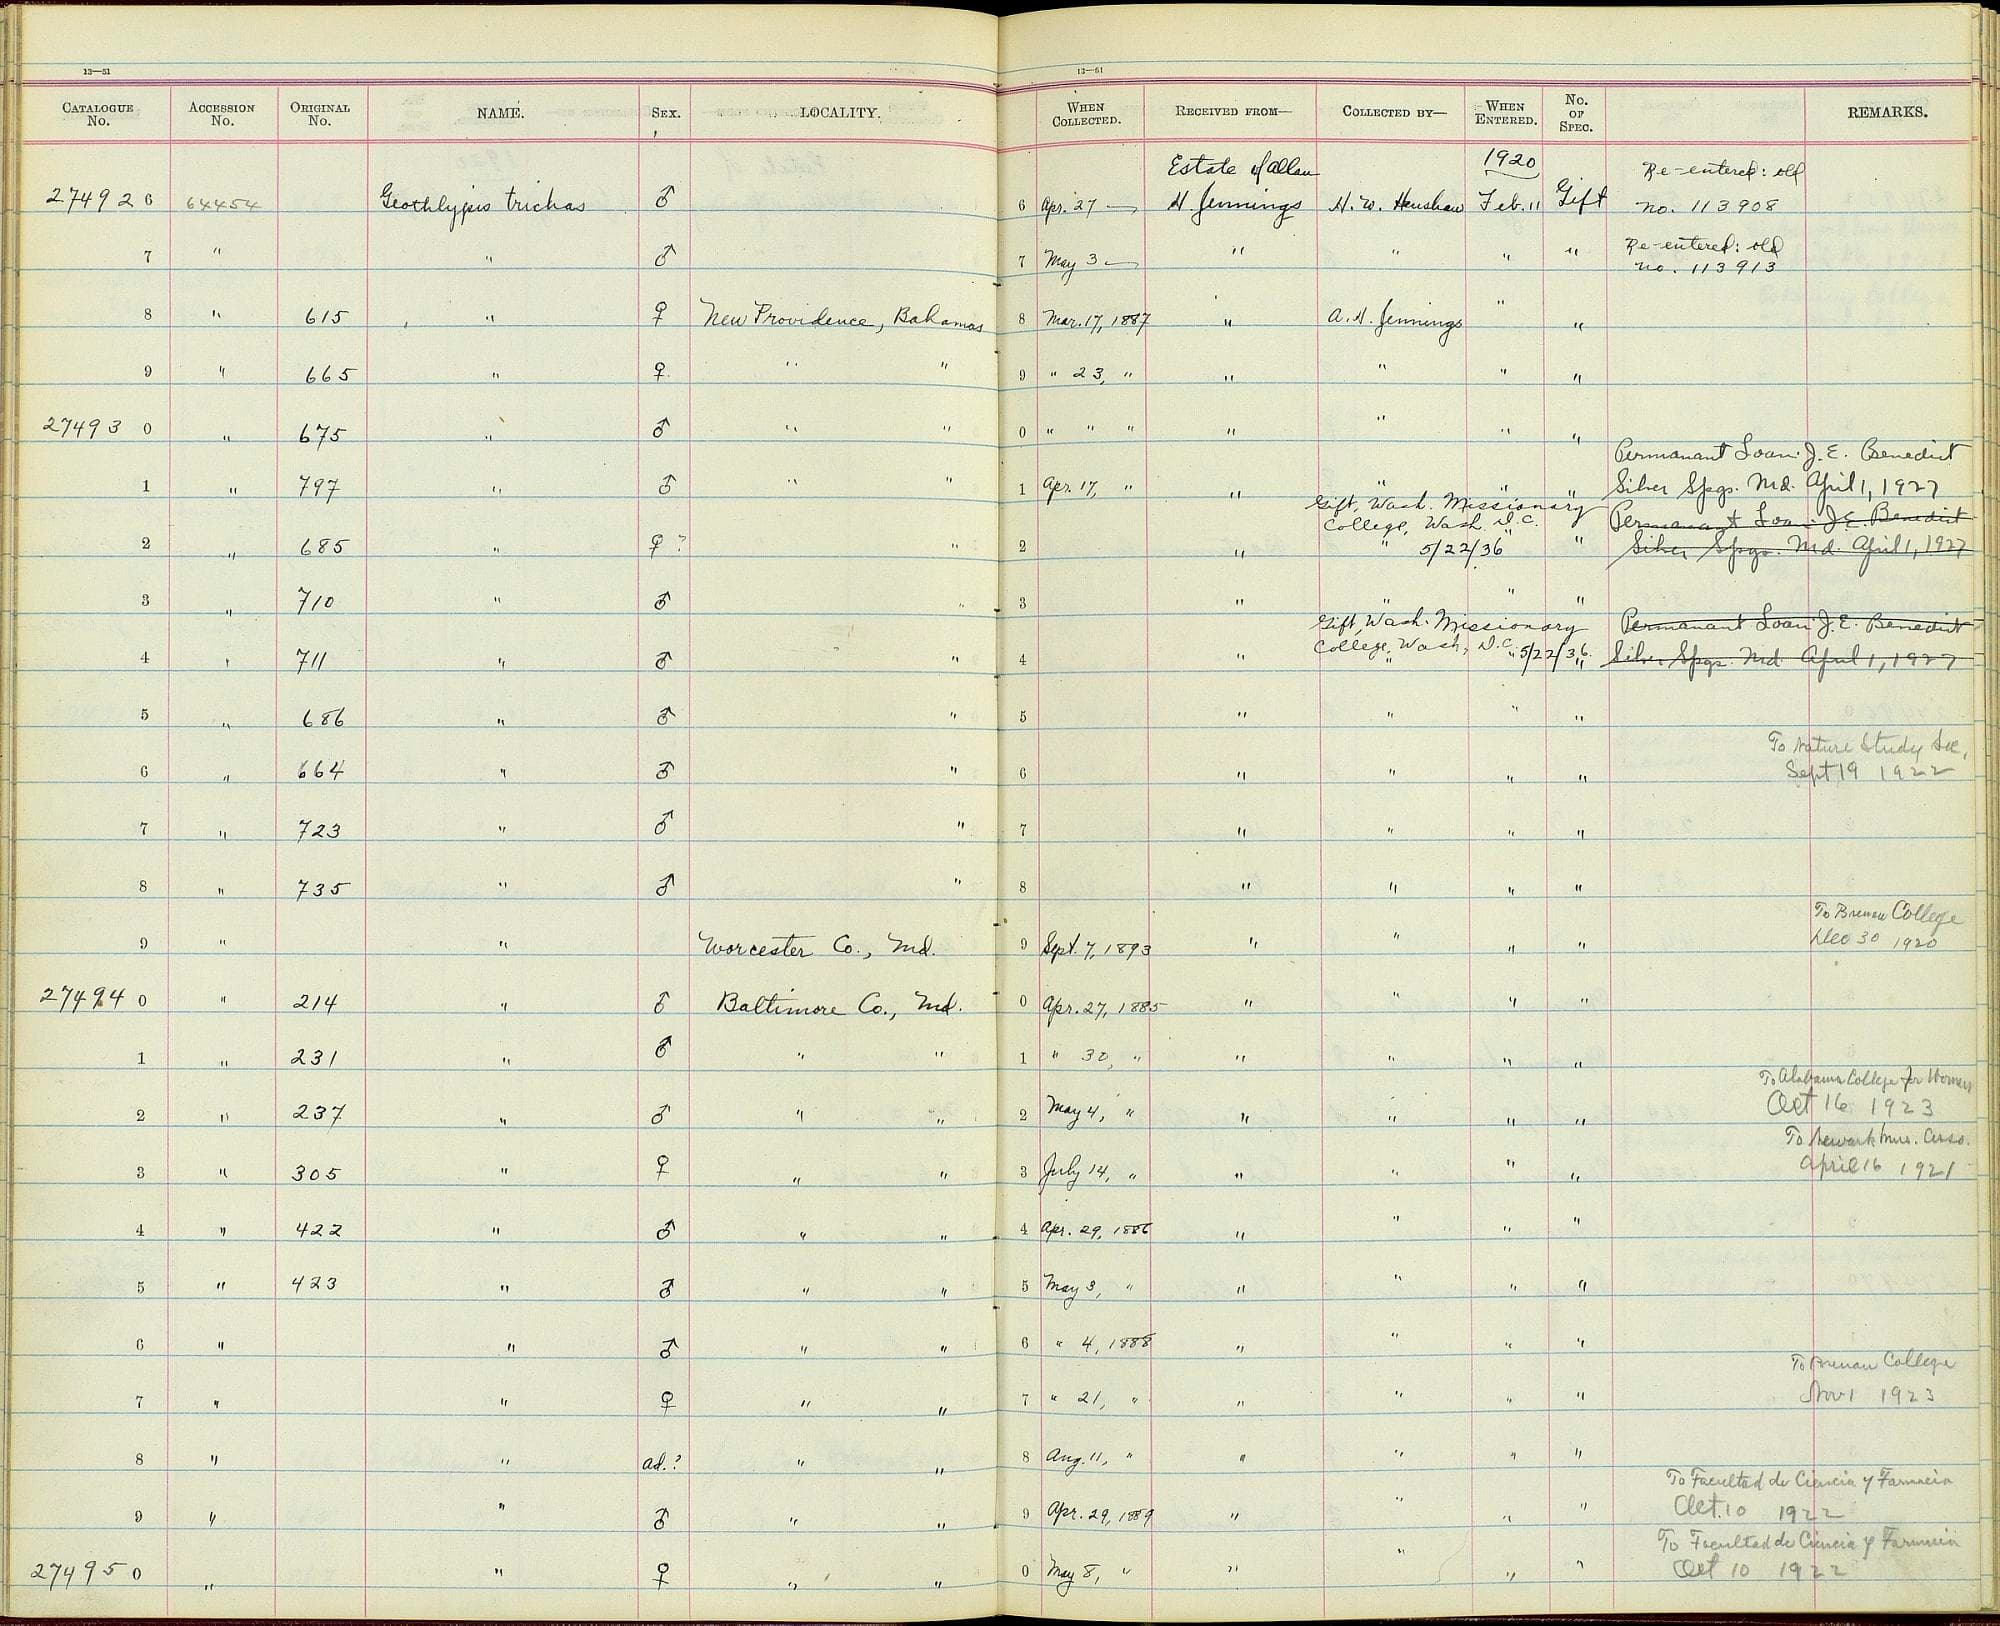 13—51
13—51
CATALOGUE No. ACCESSION No. ORIGINAL No. NAME. SEX. LOCALITY. WHEN COLLECTED. RECEIVED FROM— COLLECTED BY— WHEN ENTERED. No. OF SPEC. REMARKS.
Estate of Allan 1920 Re-entered: old
274926 64454 Geothlypis trichas ♂ 6 Apr. 27 — H. Jennings H. W. Henshaw Feb. 11 Gift no. 113908
Re-entered: old
7 " " ♂ 7 May 3 — " " " " no. 113913
8 " 615 " ♀ New Providence, Bahamas 8 Mar. 17, 1887 " A. H. Jennings " "
9 " 665 " ♀ " " 9 " 23, " " " " "
274930 " 675 " ♂ " " 0 " " " " " " "
Permanant Loan. J. E. Benedict
1 " 797 " ♂ " " 1 Apr. 17, " " " " " Silver Spgs. Md. April 1, 1927
Gift, Wash. Missionary
College, Wash. D.C. Permanant Loan J. E. Benedict
2 " 685 " ♀? " 2 " " 5/22/36 " " Silver Spgs. Md. April 1, 1927
3 " 710 " ♂ " 3 " " " "
Gift, Wash. Missionary Permanant Loan J. E. Benedict
4 " 711 " ♂ " 4 " College, Wash, D.C. " 5/22/36. " Silver Spgs. Md. April 1, 1927
5 " 686 " ♂ " 5 " " " "
To Nature Study Soc,
6 " 664 " ♂ " 6 " " " " Sept, 19 1922
7 " 723 " ♂ " 7 " " " "
8 " 735 " ♂ " 8 " " " "
To Brenau College
9 " " Worcester Co., Md. 9 Sept. 7, 1893 " " " " Dec 30 1920
274940 " 214 " ♂ Baltimore Co., Md. 0 Apr. 27, 1885 " " " "
1 " 231 " ♂ " " 1 " 30, " " " " "
To Alabama College for Women
2 " 237 " ♂ " " 2 May 4, " " " " " Oct 16 1923
To Newark Mus. Asso.
3 " 305 " ♀ " " 3 July 14, " " " " " April 16 1921
4 " 422 " ♂ " " 4 Apr. 29, 1886 " " " "
5 " 423 " ♂ " " 5 May 3, " " " " "
6 " " ♂ " " 6 " 4, 1888 " " " "
To Brenau College
7 " " ♀ " " 7 " 21, " " " " " Nov 1 1923
8 " " ad.? " " 8 Aug. 11, " " " " "
To Facultad de Ciencia y Farmacia
9 " " ♂ " " 9 Apr. 29, 1889 " " " " Oct. 10 1922
To Facultad de Ciencia y Farmacia
274950 " " ♀ " " 0 May 8, " " " " " Oct 10 1922